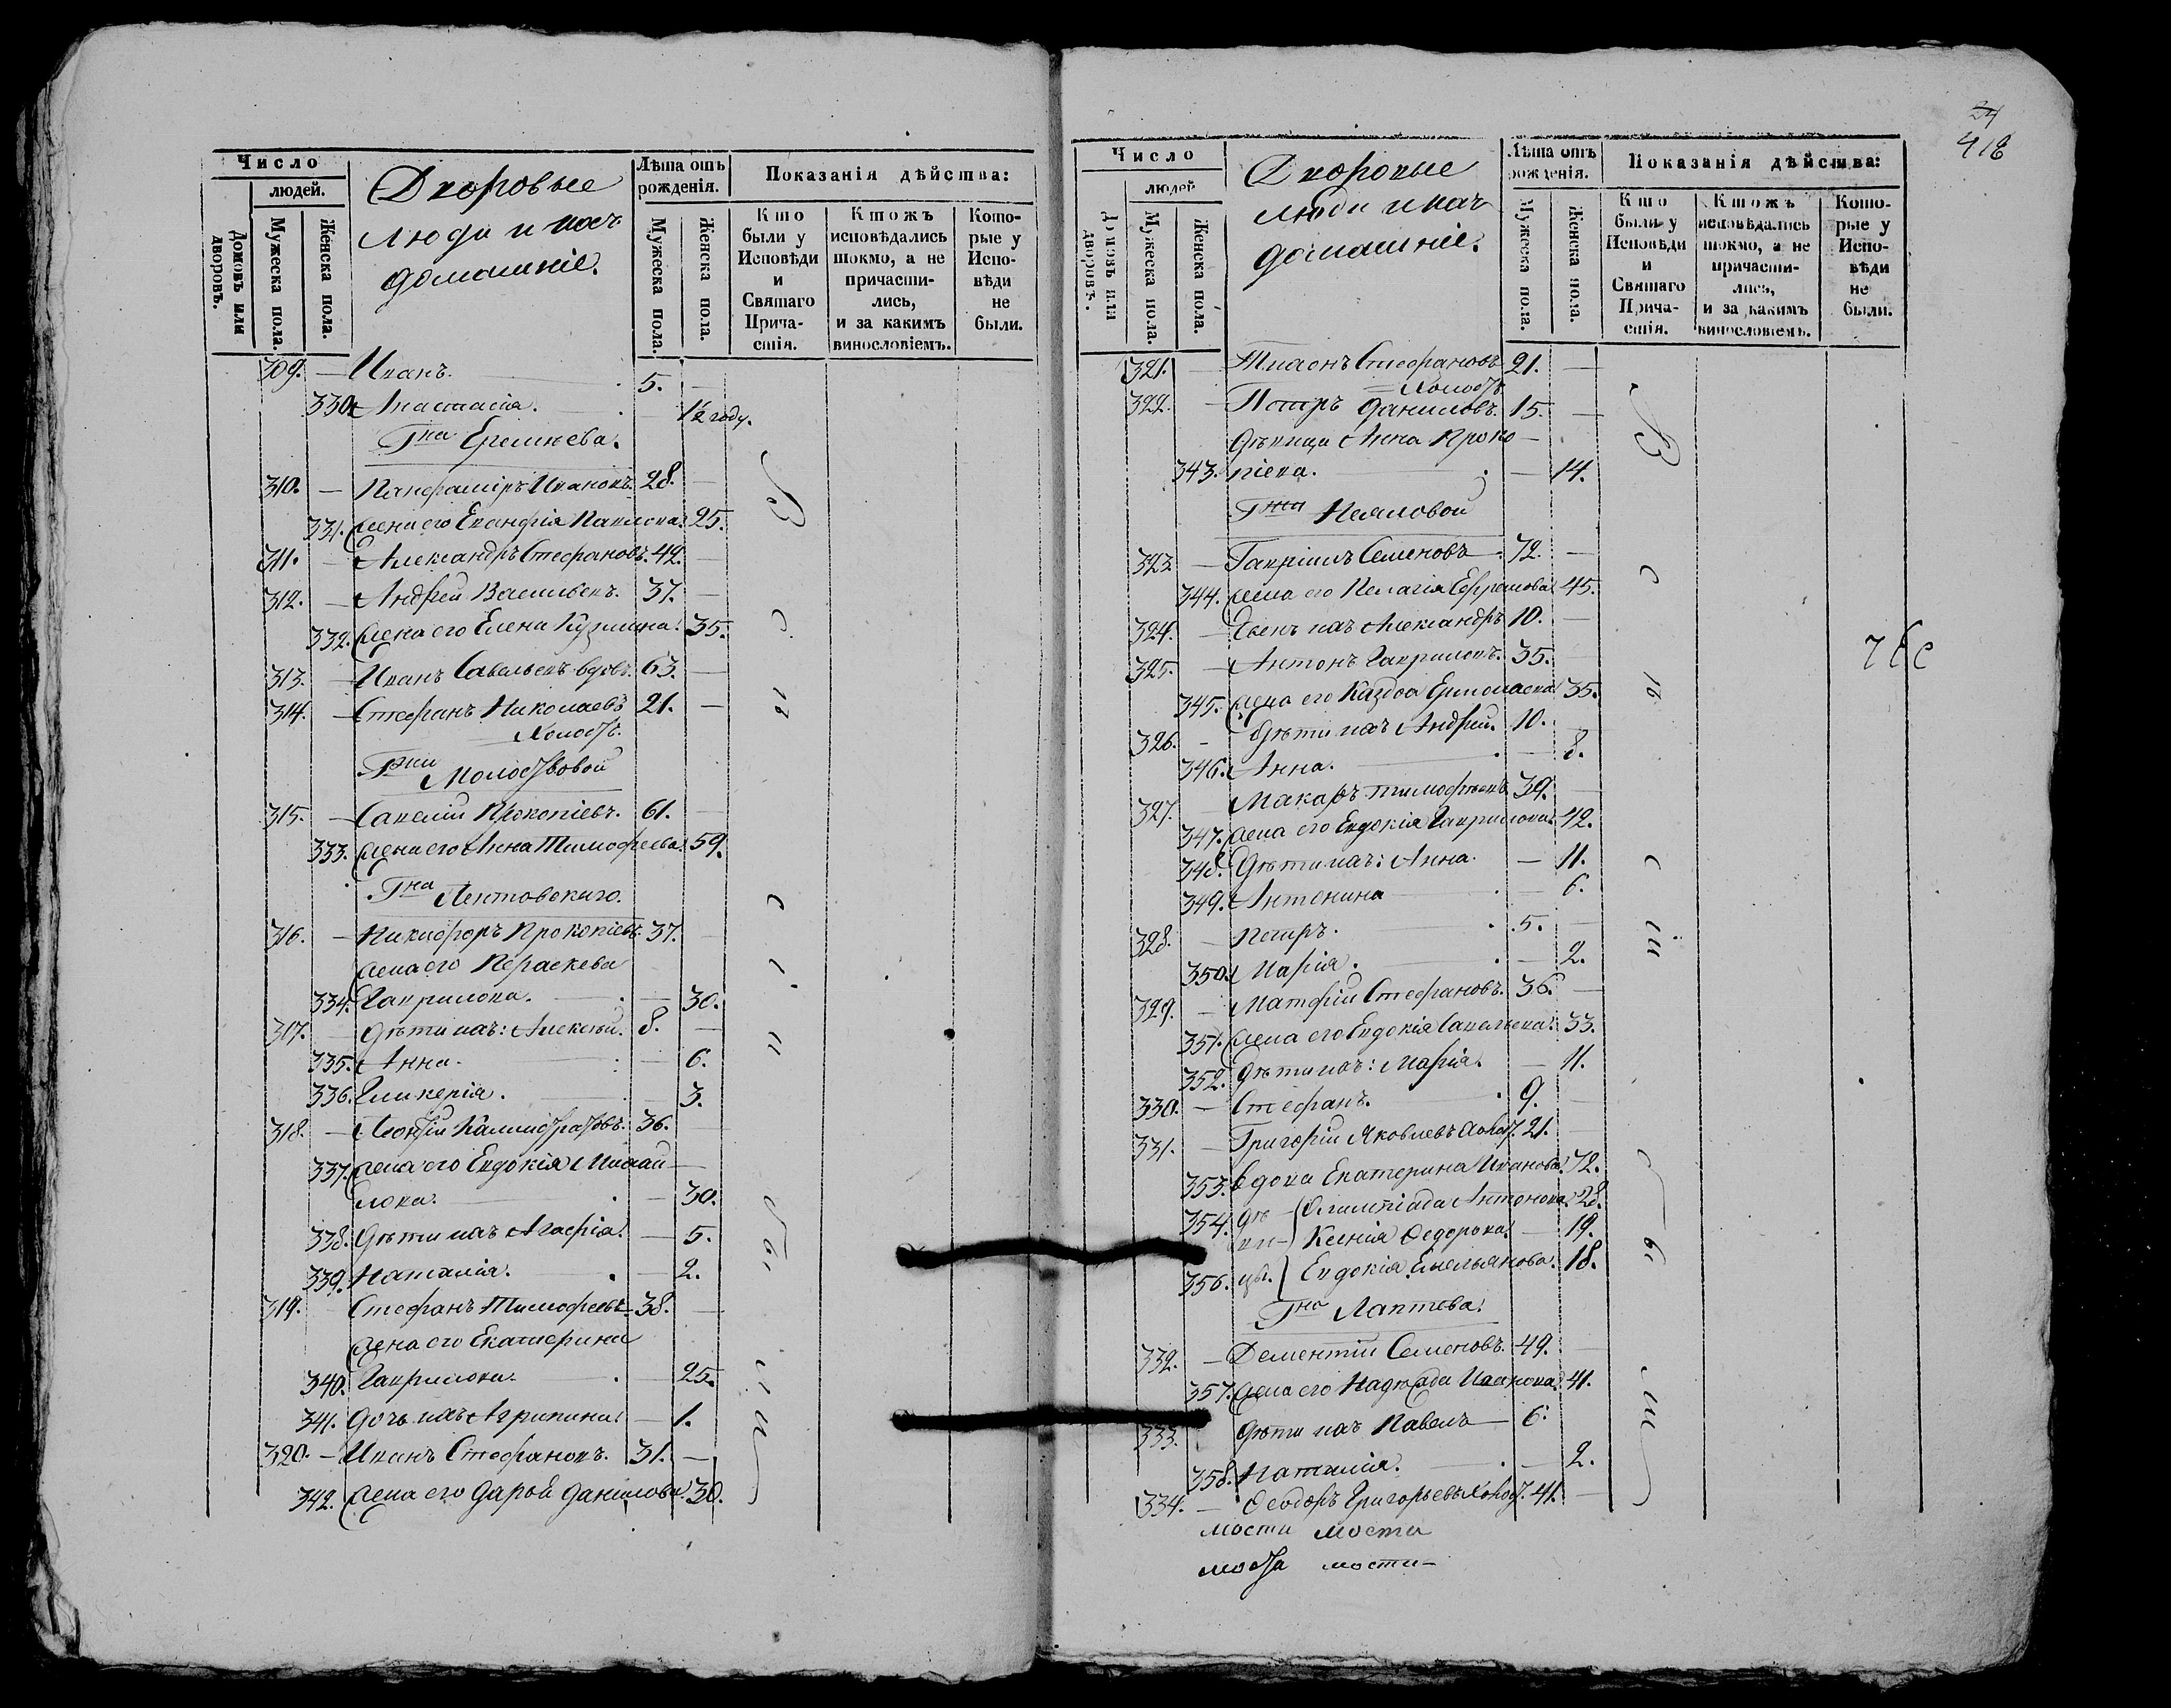 24
418
Число
людей.
Домовъ или дворовъ.
Мужеска пола.
Женска пола.
Дворовые
люди и ихъ
домашніе.
Лѣта отъ
рожденія.
Мужеска пола.
Женска пола.
Показанія дѣйства:
Кто
были у
Исповѣди
и
Святаго
Прича-
стія.
Ктожъ
исповѣдались
токмо, а не
причасти-
лись,
и за какимъ
винословіемъ.
Кото-
рые у
Испо-
вѣди
не
были.
309. — Иванъ. 5. —
330. Анастасія. — 1½ году.
Гна Еремѣева.
310. — Панфамиръ Ивановъ. 28. —
331. жена его Еванфія Павлова. 25.
311. — Александръ Стефановъ. 42. —
312. — Андрей Васильевъ. 37. —
332. жена его Елена Кузмина. 35.
313. — Иванъ Савельевъ вдовъ. 63. —
314. — Стефанъ Николаевъ 21. —
холостъ.
Гжи Молоствовой
315. — Савелій Прокопіевъ. 61. —
333. жена его Анна Тимофеева. 59.
Гна Лентовскаго.
316. — Никифоръ Прокопіевъ. 37. —
жена его Параскева
334. Гаврилова. — 30.
317. — дѣти ихъ: Алексѣй. 8. —
335. Анна. — 6.
336. Гликерія. — 3.
318. — Леонтій Каллистратовъ. 36. —
337. жена его Евдокія Михай-
лова. — 30.
338. Дѣти ихъ Агафія. — 5.
339. Наталія. — 2.
319. — Стефанъ Тимофеевъ 38. —
жена его Екатерина
340. Гаврилова. — 25.
341. дочь ихъ Агрипина. — 1.
320. — Иванъ Стефановъ. 31. —
342. жена его Дарья Данилова. 30.
Всѣ
были
Число
людей
Домовъ или дворовъ.
Мужеска пола.
Женска пола.
Дворовые
люди и ихъ
домашніе.
Лѣта отъ
рожденія.
Мужеска пола.
Женска пола.
Показанія дѣйства:
Кто
были у
Исповѣди
и
Святаго
Прича-
стія.
Ктожъ
исповѣдались
токмо, а не
причасти-
лись,
и за какимъ
винословіемъ.
Кото-
рые у
Испо-
вѣди
не
были.
321. — Тихонъ Стефановъ 21. —
холостъ
322. — Петръ Даниловъ. 15. —
дѣвица Анна Проко-
343. піева. — 14.
Гжи Неяловой
323. — Гавріилъ Семеновъ 72. —
344. жена его Пелагія Ефремова 45.
324. — Сынъ ихъ Александръ 10. —
325. — Антонъ Гавриловъ. 35. —
345. жена его Ермолаева 35.
326. — Дѣти ихъ Андрей. 10.
346. Анна. — 8.
327. Макаръ Тимофѣевъ 39. —
347. жена его Евдокія Гаврилова. 42.
348. Дѣти ихъ: Анна. — 11.
349. Антонина — 6.
328. — Петръ. 5. —
350. Марія. — 2.
329. — Матфій Стефановъ. 36. —
351. жена его Евдокія Савельева. 33.
352. Дѣти ихъ: Марія. — 11.
330. — Стефанъ. 9. —
331. — Григорій Яковлевъ холост. 21. —
353. вдова Екатерина Иванова. 72.
354. дѣ- Олимпіада Антонова. 28.
ви- Ксенія Федорова. — 19.
356. цы. Евдокія Емельянова. 18.
Гна Лаптева.
332. — Дементій Семеновъ. 49. —
357. жена его Надежда Иванова. 41.
333. дѣти ихъ Павелъ — 6.
358. Наталія. — 2.
334. — Феодоръ Григорьевъ холост. 41. —
мости мости
моста мости-